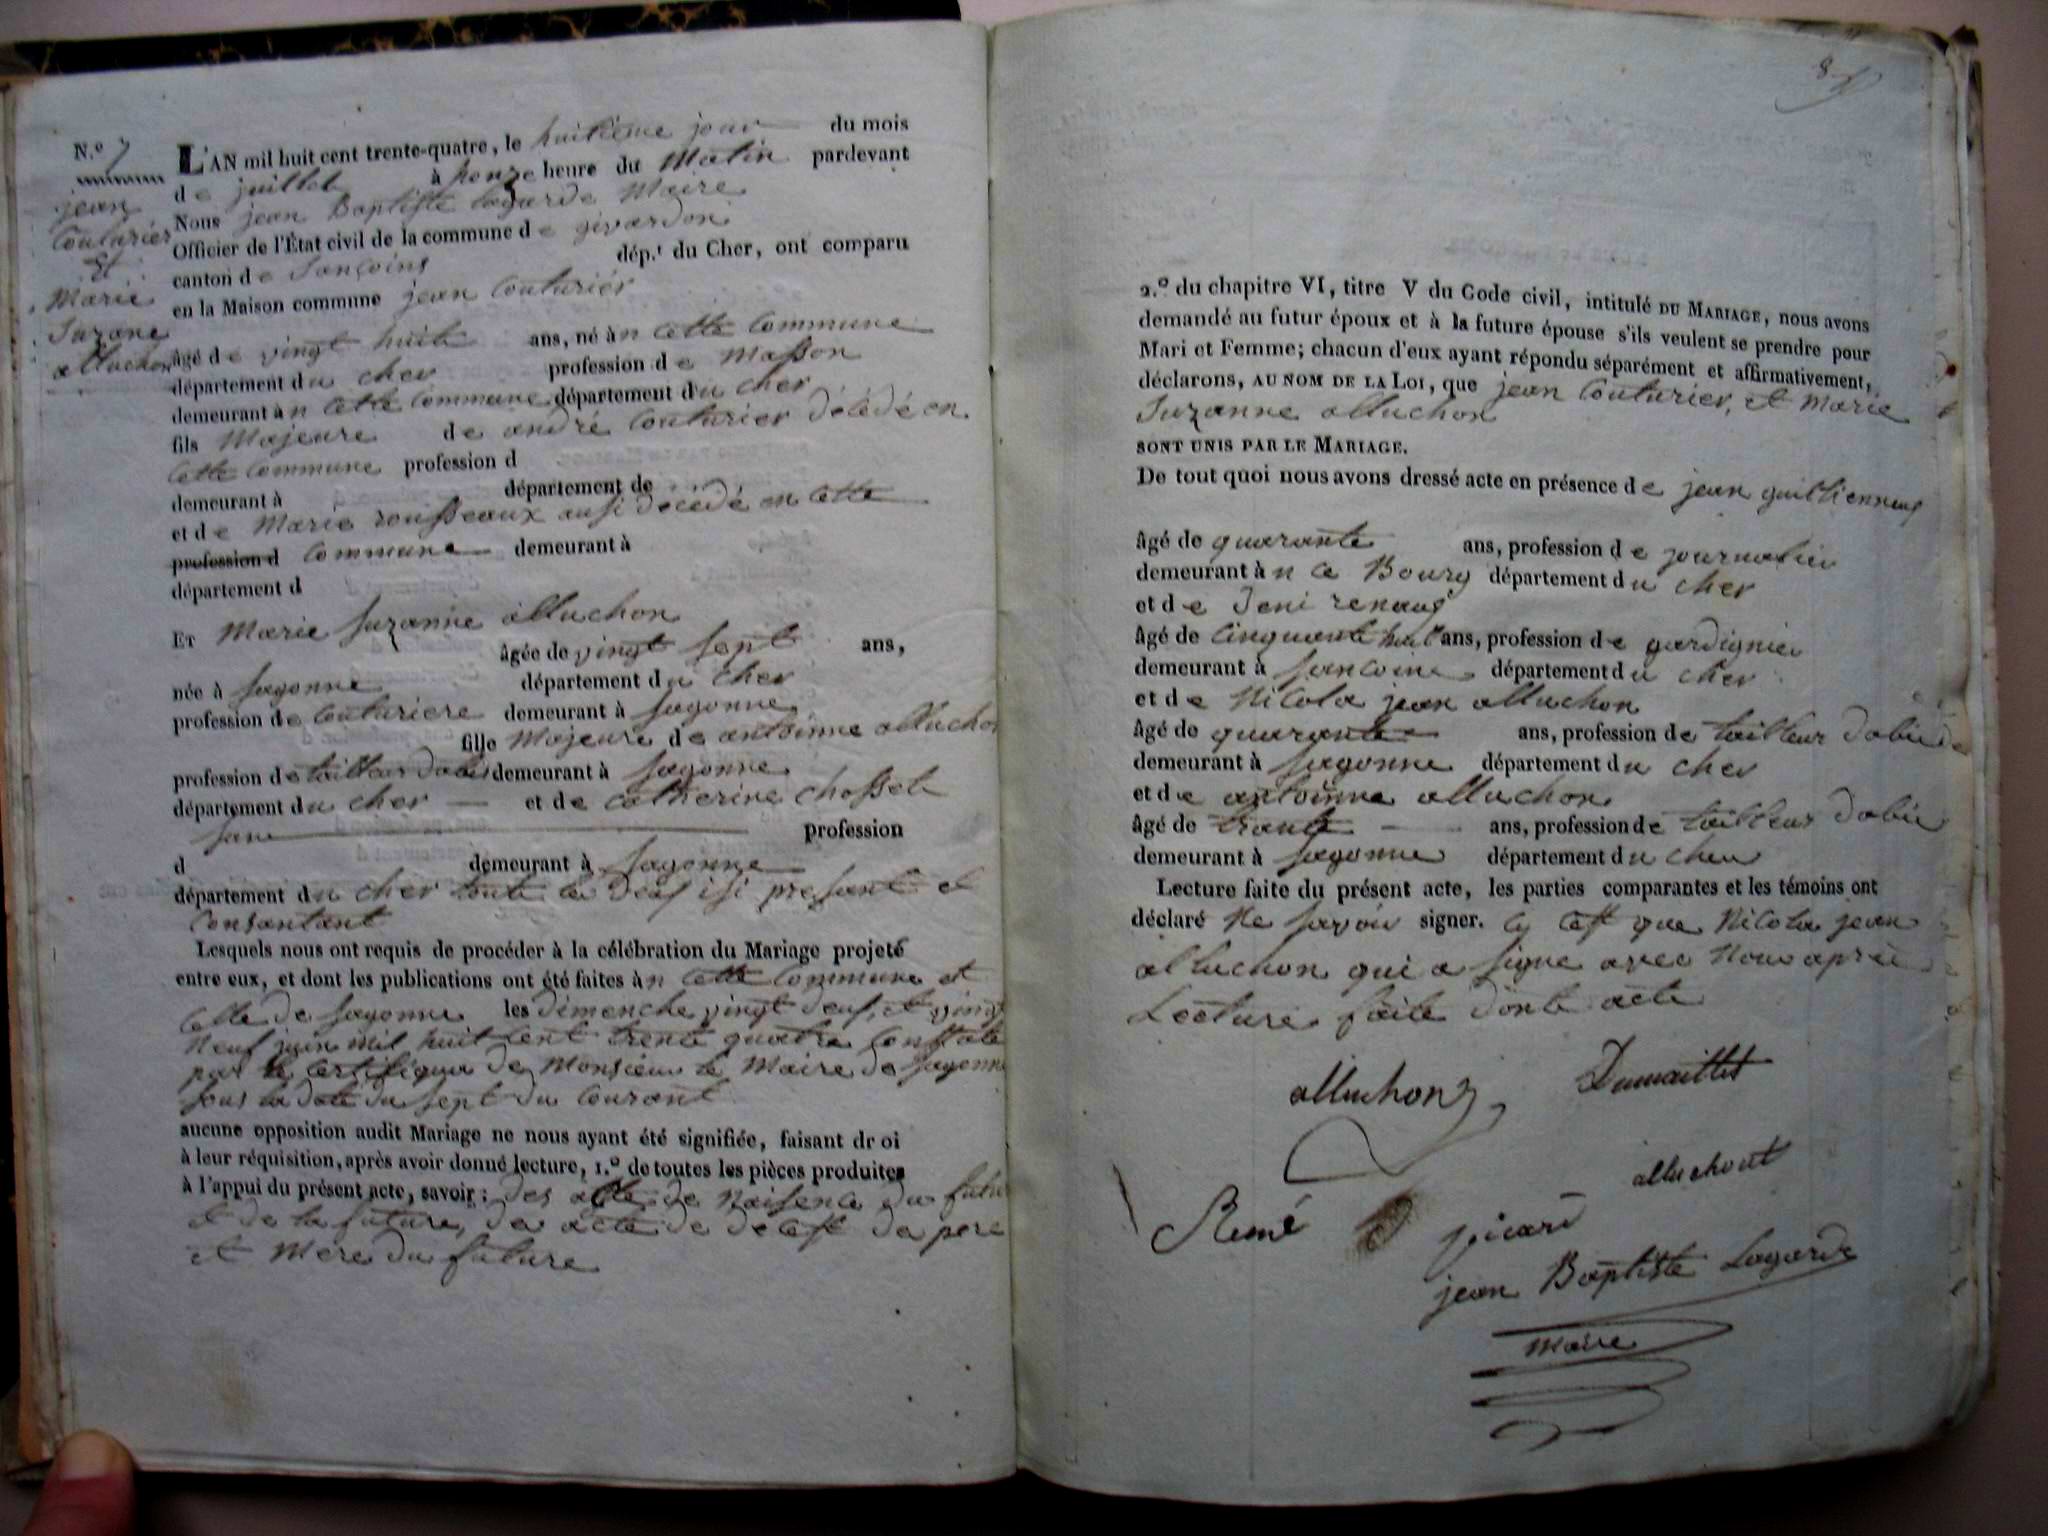 N.º 7
jean
Couturier
Et
Marie
Suzane
alluchon
L'AN mil huit cent trente-quatre, le huitième jour du mois
de juillet à honze heure du Matin pardevant
Nous jean Baptiste Lagarde Maire
Officier de l'État civil de la commune de givardon
canton de Sancoins dép.t du Cher, ont comparu
en la Maison commune jean Couturiér
âgé de vingt huit ans, né àn cette Commune
département du cher profession de Masson
demeurant àn cette Commune département du cher
fils Majeure de andré Couturier décédé en
Cette Commune profession d
demeurant à département de
et de Marie rousseaux ausi décédé en Cette
profession d Commune demeurant à
département d
ET Marie suzanne alluchon
âgée de vingt sept ans,
née à sagonne département du cher
profession de Couturiere demeurant à sagonne
fille Majeure de antoinne alluchon
profession de tailleur dabis demeurant à sagonne
département du cher et de catherine chosset
sans profession
d demeurant à sagonne
département du cher toute les deus isi presant et
Consantant
Lesquels nous ont requis de procéder à la célébration du Mariage projeté
entre eux, et dont les publications ont été faites àn cette Commune et
Celle de sagonne les dimenche vingt deus, et vingt
Neuf juin mil huit cent trente quatre Constate
par le certifiqua de Monsieur le Maire de sagonne
sous la date du sept du Courant
aucune opposition audit Mariage ne nous ayant été signifiée, faisant dr oi
à leur réquisition, après avoir donné lecture, 1.º de toutes les pièces produites
à l'appui du présent acte, savoir: des acte de Naisence du futur
et de la future, des acte de desest de pere
et Mere du future
8
2.º du chapitre VI, titre V du Code civil, intitulé DU MARIAGE, nous avons
demandé au futur époux et à la future épouse s'ils veulent se prendre pour
Mari et Femme; chacun d'eux ayant répondu séparément et affirmativement,
déclarons, AU NOM DE LA LOI, que jean Couturier, et Marie
Suzanne alluchon
SONT UNIS PAR LE MARIAGE.
De tout quoi nous avons dressé acte en présence de jean
âgé de quarante ans, profession de journalier
demeurant àn ce Bourg département du cher
et de Deni renaus
âgé de cinquante huit ans, profession de gardignier
demeurant à sancoins département du cher
et de Nicola jean alluchon
âgé de quarante ans, profession de tailleur dabis
demeurant à sagonne département du cher
et de antoinne alluchon
âgé de trante ans, profession de tailleur dabis
demeurant à sagonne département du cher
Lecture faite du présent acte, les parties comparantes et les témoins ont
déclaré Ne savoir signer. cy cest que Nicola jean
alluchon qui a signe avec Nous après
Lecture faite donte acte
alluchon Dumaillet
alluchont
René picard
jean Baptiste Lagarde
Maire